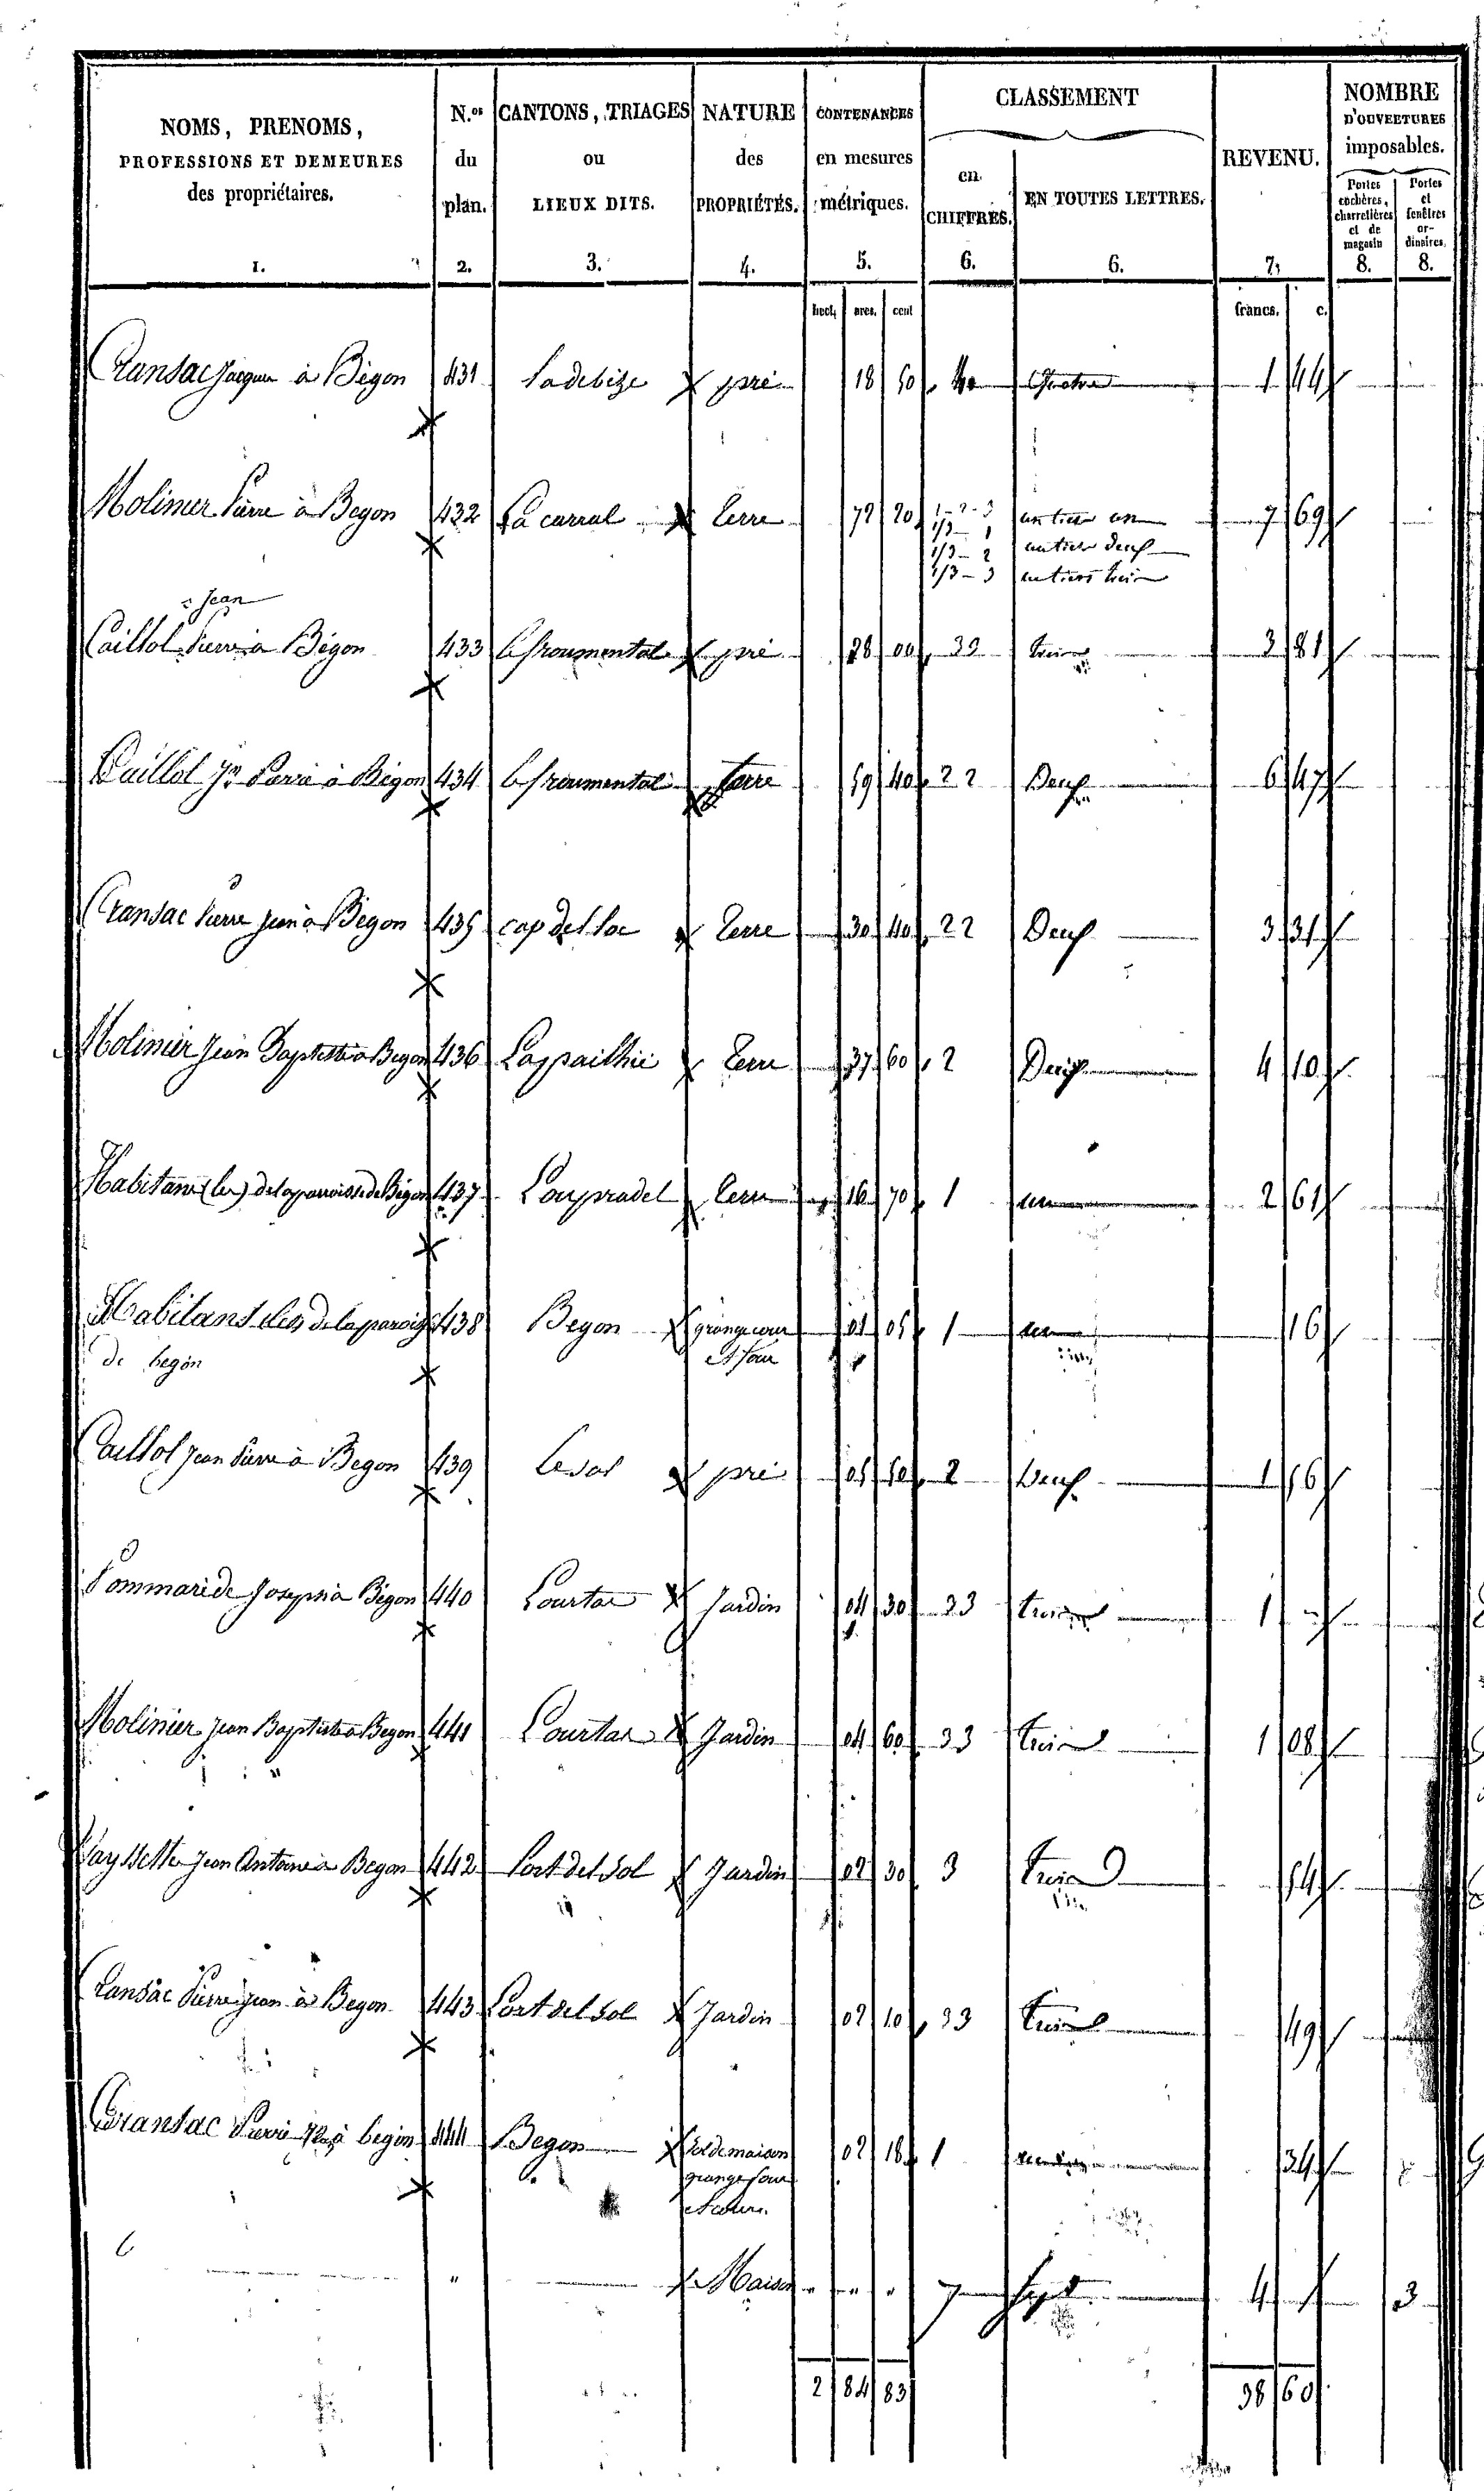 NOMS, PRENOMS, PROFESSIONS ET DEMEURES des propriétaires. 1.
N.os du plan. 2.
CANTONS, TRIAGES ou LIEUX DITS. 3.
NATURE des PROPRIÉTÉS. 4.
CONTENANCES en mesures métriques. 5.
CLASSEMENT
en CHIFFRES. 6.
EN TOUTES LETTRES. 6.
REVENU. 7.
NOMBRE D'OUVERTURES imposables.
Portes cochères, charretières et de magasin 8.
Portes et fenêtres ordinaires. 8.
hect. ares. cent francs. c.
Cransac Jacques à Bégon 431 Ladebize pré 18 50 4 Quatre 1 44
Molinier Pierre à Begon 432 La carral terre 72 20 1-2-3 un tiers un 7 69
1/3 - 1
1/3 - 2 un tiers deux
1/3 - 3 un tiers trois
Jean
Caillol Pierre à Bégon 433 le froumental pré 28 00 33 trois 3 81
Caillol Jn Pierre à Bégon 434 le froumental terre 59 40 22 Deux 6 47
Cransac Pierre Jean à Bégon 435 cap del loc terre 30 40 22 Deux 3 31
Molinier Jean Baptiste à Begon 436 Lappailhié terre 37 60 2 Deux 4 10
Habitans (les) de la paroisse de Bégon 437 Loupradel terre 16 70 1 un 2 61
Habitans (les) de la paroisse 438 Begon grange cour 01 05 1 un 16
de begon et four
Caillol Jean Pierre à Begon 439 Lesol pré 05 50 2 Deux 1 16
Pommarède Joseph à Bégon 440 Lourtar Jardin 04 30 33 trois 1
Molinier Jean Baptiste à Begon 441 Lourtar Jardin 04 60 33 trois 1 08
Vayssette Jean Antoine à Begon 442 Lort del sol Jardin 02 30 3 trois 54
Cransac Pierre Jean à Begon 443 Lort del sol Jardin 02 10 33 trois 49
Cransac Pierre Jn à begon 444 Begon Sol de maison 02 18 1 34
grange four
et cour.
" Maison " " " 7 Sept 4 3
2 84 83 38 60